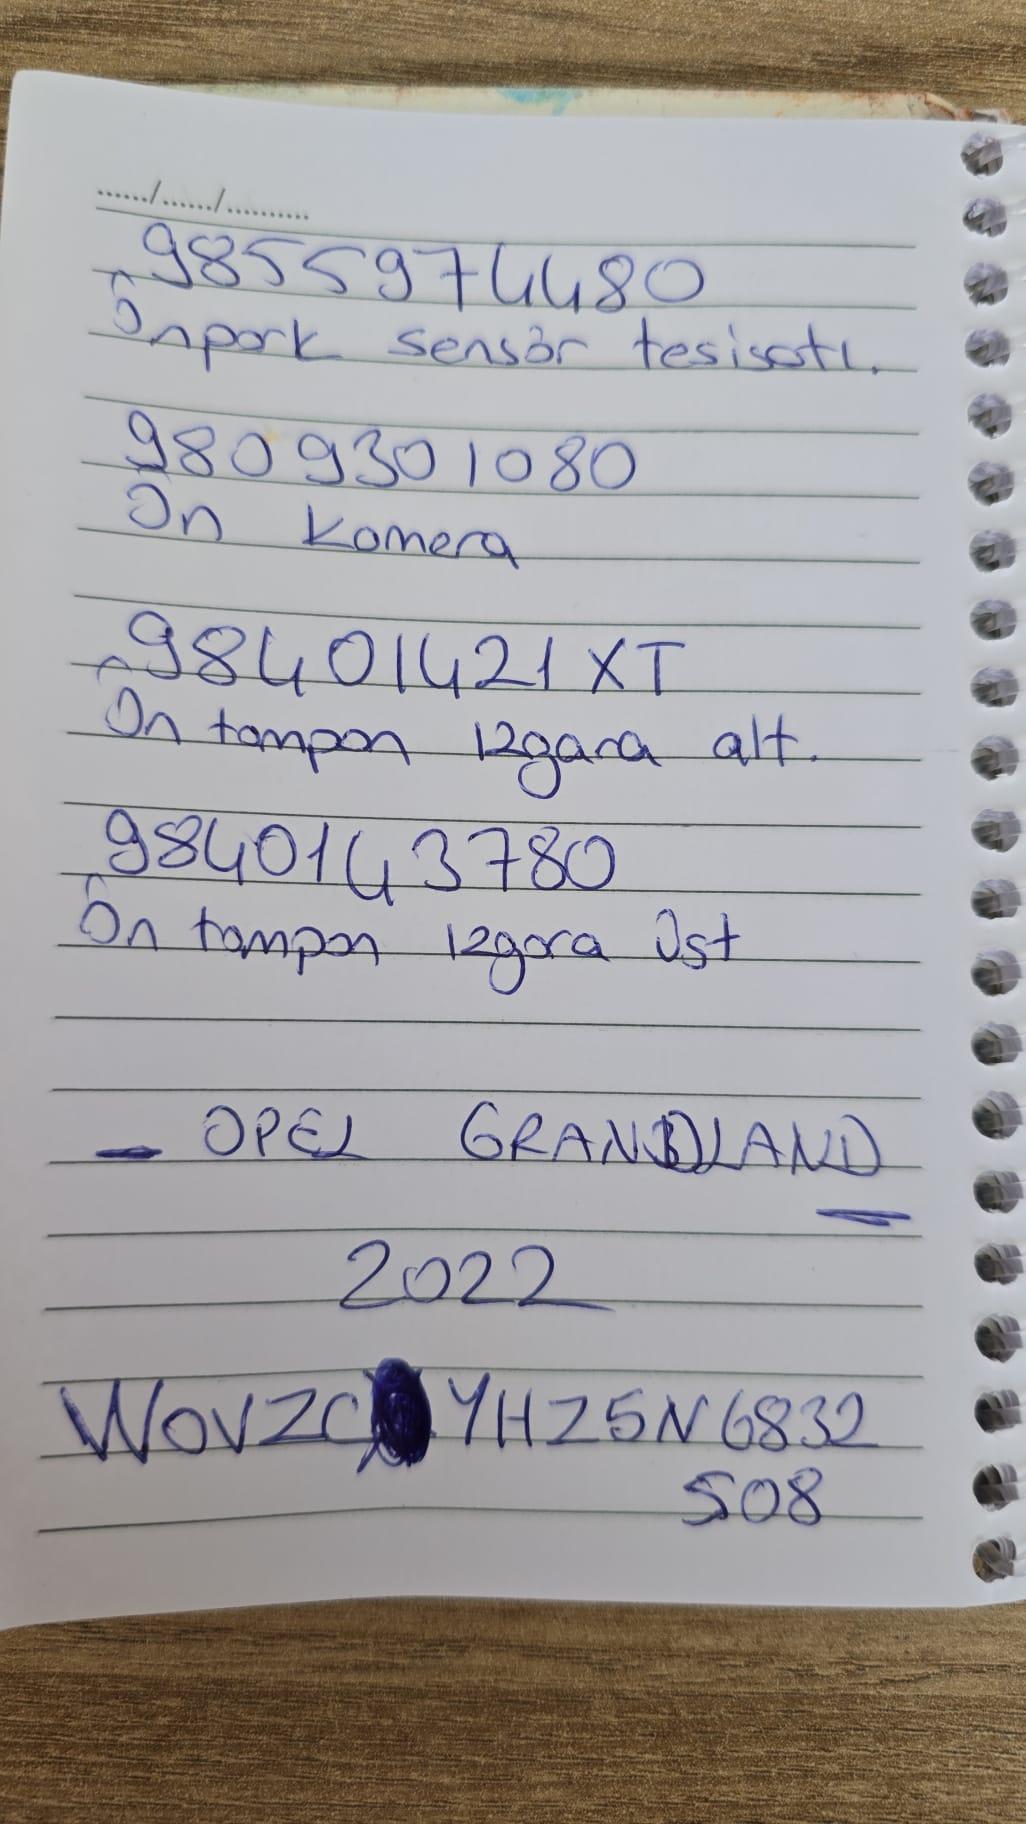 ....../....../..........
9855974480
Önpark sensör tesisatı.
9809301080
Ön Kamera
98401421XT
Ön tampon ızgara alt.
9840143780
Ön tampon ızgara Üst
- OPEL GRANDLAND
2022
WOVZC YHZ5N6832
508